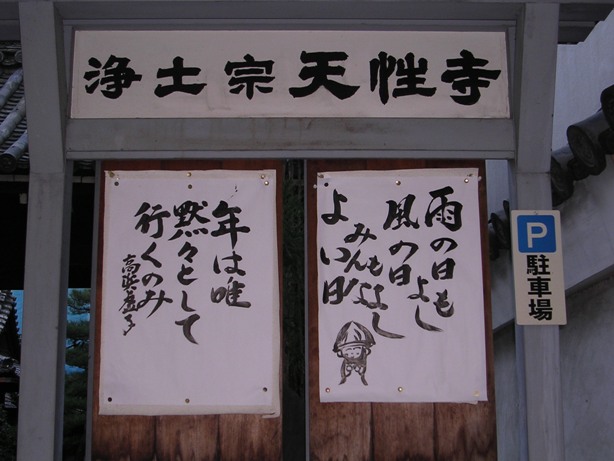 浄土宗天性寺
雨の日もよし
風の日もよし
みんな
よい日
年は唯
黙々として
行くのみ
高浜虚子
P
駐車場